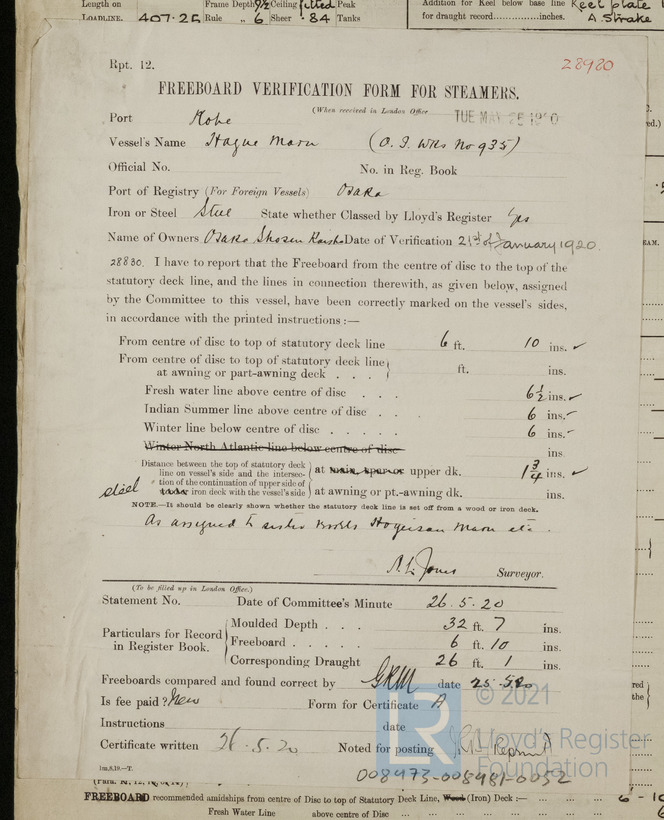 Length on
LOADLINE. 407.25
Frame Depth 9½ Ceiling fitted Peak
Rule „ 6 Sheer .84 Tanks
Addition for Keel below base line Keel plate
for draught record..............inches. A Strake
Rpt. 12.
28980
FREEBOARD VERIFICATION FORM FOR STEAMERS.
(When received in London Office
TUE MAY 25 1920
Port Kobe
Vessel's Name Hague Maru (O. I. Wks No 935)
Official No. No. in Reg. Book
Port of Registry (For Foreign Vessels) Osaka
Iron or Steel Steel State whether Classed by Lloyd's Register Yes
Name of Owners Osaka Shosen Kaisha Date of Verification 21st of January 1920.
28830. I have to report that the Freeboard from the centre of disc to the top of the
statutory deck line, and the lines in connection therewith, as given below, assigned
by the Committee to this vessel, have been correctly marked on the vessel's sides,
in accordance with the printed instructions :—
From centre of disc to top of statutory deck line 6 ft. 10 ins. ✓
From centre of disc to top of statutory deck line
at awning or part-awning deck . . . ft. ins.
Fresh water line above centre of disc . . . 6½ ins. ✓
Indian Summer line above centre of disc . . 6 ins. ✓
Winter line below centre of disc . . . . . 6 ins. ✓
Winter North Atlantic line below centre of disc ins
Distance between the top of statutory deck
line on vessel's side and the intersec-
tion of the continuation of upper side of
steel iron deck with the vessel's side
at main, spar or upper dk. 1¾ ins. ✓
at awning or pt.-awning dk. ins.
NOTE.—It should be clearly shown whether the statutory deck line is set off from a wood or iron deck.
As assigned to sister vessels Maru etc.
Surveyor.
(To be filled up in London Office.)
Statement No. Date of Committee's Minute 26.5.20
Particulars for Record
in Register Book.
Moulded Depth . . . 32 ft. 7 ins.
Freeboard . . . . . 6 ft. 10 ins.
Corresponding Draught 26 ft. 1 ins.
Freeboards compared and found correct by GRM date 25.5.20
Is fee paid? New Form for Certificate A
Instructions date
Certificate written 26.5.20 Noted for posting
1m,8,19.—T.
© 2021
LR Lloyd's Register
Foundation
008473-008481-0052
FREEBOARD recommended amidships from centre of Disc to top of Statutory Deck Line, Wood (Iron) Deck :—
Fresh Water Line above centre of Disc